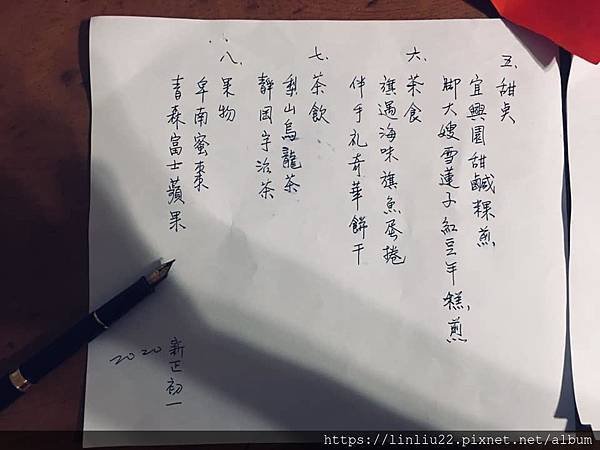 五、甜点
宜興園甜鹹粿煎
郭大嫂雪蓮子紅豆年糕,煎
六、茶食
旗遇海味旗魚蛋捲
伴手礼奇華餅干
七、茶飲
梨山烏龍茶
靜岡宇治茶
八、果物
卑南蜜棗
青森富士蘋果
新正初一
2020
https://linliu22.pixnet.net/album